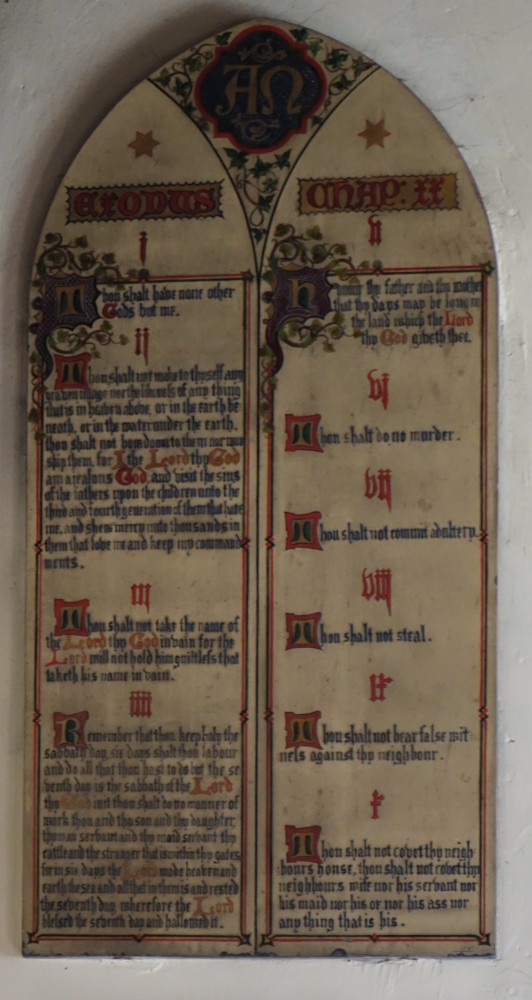 AΩ
EXODUS
i
Thou shalt have none other
Gods but me.
ij
Thou shalt not make to thyself any
graven image nor the likeness of any thing
that is in heaven above, or in the earth be
neath, or in the water under the earth.
thou shalt not bow down to them nor wor
ship them, for I the Lord thy God
am a jealous God, and visit the sins
of the fathers upon the children unto the
third and fourth generation of them that hate
me, and shew mercy unto thousands in
them that love me and keep my command
ments.
iij
Thou shalt not take the name of
the Lord thy God in vain for the
Lord will not hold him guiltless that
taketh his name in vain.
iiij
Remember that thou keep holy the
sabbath day, six days shalt thou labour
and do all that thou hast to do but the se
venth day is the sabbath of the Lord
thy God in it thou shalt do no manner of
work thou and thy son and thy daughter,
thy man servant and thy maid servant thy
cattle and the stranger that is within thy gates
for in six days the Lord made heaven and
earth the sea and all that in them is and rested
the seventh day, wherefore the Lord
blessed the seventh day and hallowed it.
CHAP: XX
v
Honour thy father and thy mother
that thy days may be long in
the land which the Lord
thy God giveth thee.
vj
Thou shalt do no murder.
vij
Thou shalt not commit adultery.
viij
Thou shalt not steal.
ix
Thou shalt not bear false wit
ness against thy neighbour.
x
Thou shalt not covet thy neigh
bours house, thou shalt not covet thy
neighbours wife nor his servant nor
his maid nor his ox nor his ass nor
any thing that is his.